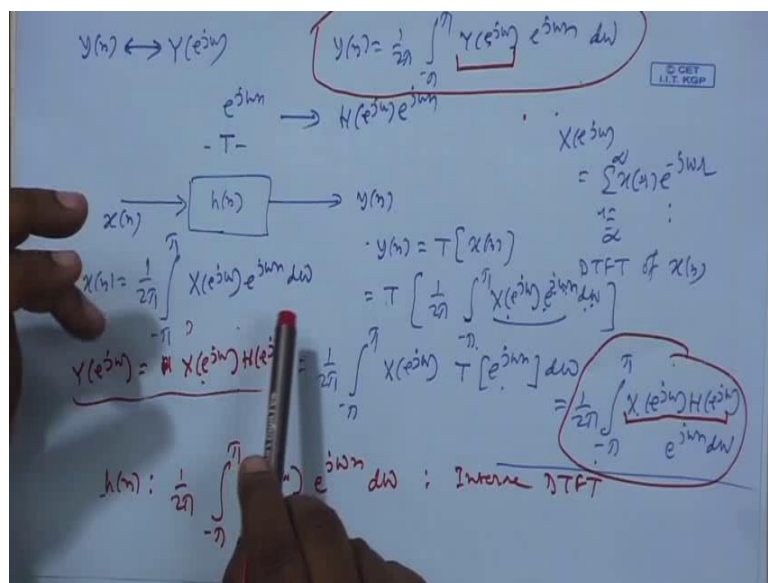 y(n) ↔ Y(e^{jω})
y(n) = 1/2π ∫_{-π}^{π} Y(e^{jω}) e^{jωn} dω
© CET
I.I.T. KGP
e^{jωn} → H(e^{jω}) e^{jωn}
- T -
X(e^{jω})
= Σ x(r) e^{-jωr}
DTFT of x(n)
x(n) → h(n) → y(n)
y(n) = T[x(n)]
x(n) = 1/2π ∫_{-π}^{π} X(e^{jω}) e^{jωn} dω
= T [ 1/2π ∫_{-π}^{π} X(e^{jω}) e^{jωn} dω ]
Y(e^{jω}) = X(e^{jω}) H(e
= 1/2π ∫_{-π}^{π} X(e^{jω}) T[e^{jωn}] dω
= 1/2π ∫_{-π}^{π} X(e^{jω}) H(e^{jω}) e^{jωn} dω
h(n) : 1/2π ∫_{-π}^{π} e^{jωn} dω : Inverse DTFT